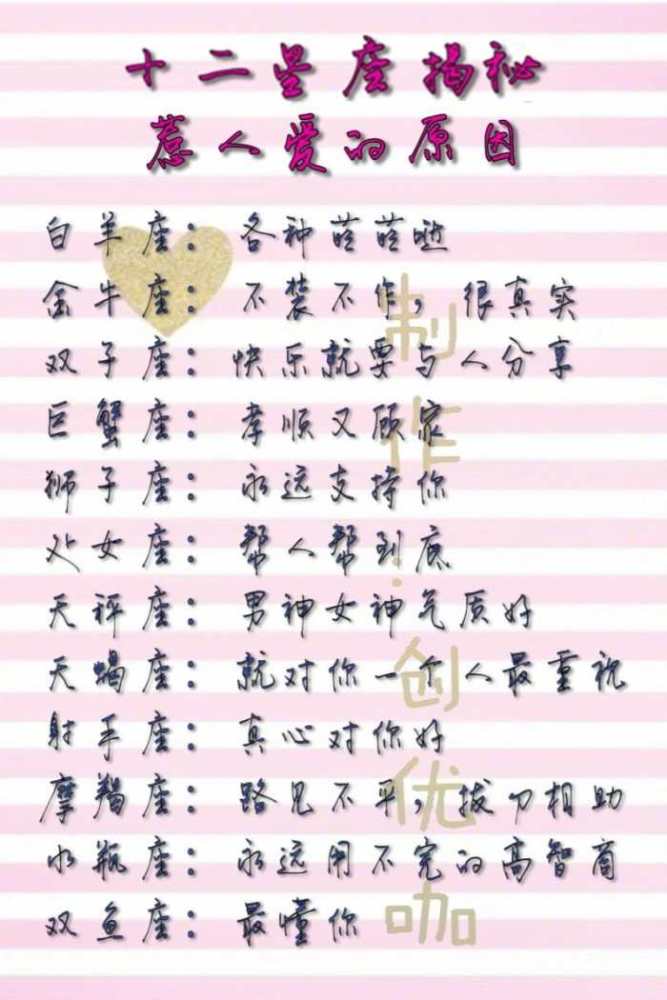 十二星座揭秘
惹人爱的原因
白羊座：各种萌萌哒
金牛座：不装不作，很真实
双子座：快乐就要与人分享
巨蟹座：孝顺又顾家
狮子座：永远支持你
处女座：帮人帮到底
天秤座：男神女神气质好
天蝎座：就对你一个人最重视
射手座：真心对你好
摩羯座：路见不平，拔刀相助
水瓶座：永远用不完的高智商
双鱼座：最懂你
制作：创优咖